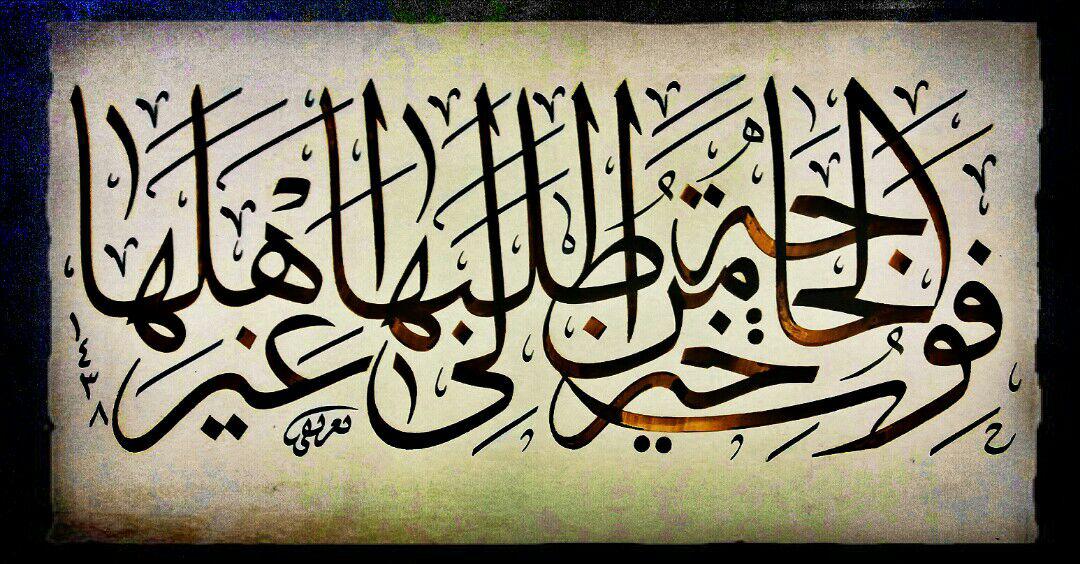 فوت الحاجة خير من طلبها إلى غير أهلها
١٤٣٨